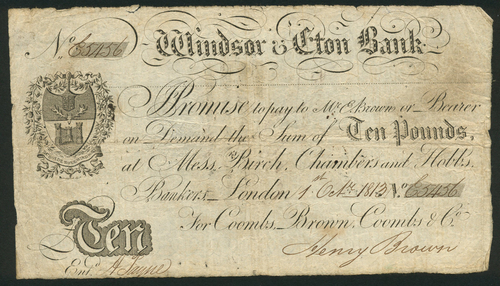 No. E5456 Windsor & Eton Bank
I Promise to pay to Mr. C. Brown or Bearer
on Demand the Sum of Ten Pounds,
at Messrs. Birch, Chambers and Hobbs,
Bankers London 1st Octr. 1813 No. E5456
For Coombs, Brown, Coombs & Co.
Ten
Henry Brown
Entd.